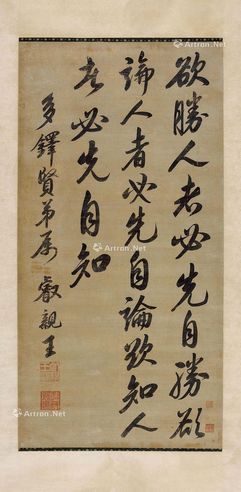 欲勝人者必先自勝欲
論人者必先自論欲知人
者必先自知
多鐸賢弟属 睿親王
Artron.Net
Artron.Net
Artron.Net
Artron.Net